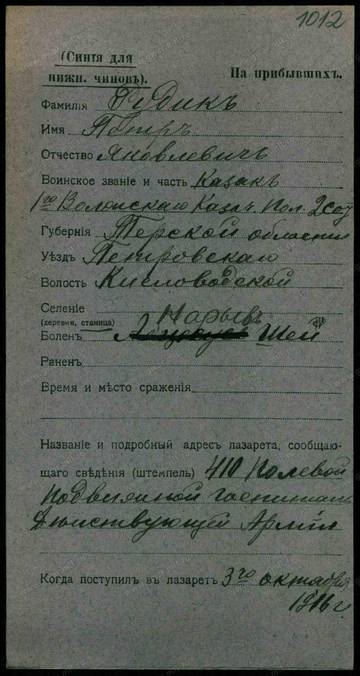 1012
(Синія для
нижн. чиновъ).
На прибывшихъ.
Фамилія Рудикъ
Имя Петръ
Отчество Яковлевичъ
Воинское званіе и часть Казакъ
1го Волжскаго Казач. Пол. 2 сот
Губернія Терской области
Уѣздъ Петровскаго
Волость Кисловодской
Селеніе
(деревня, станица)
Нарывъ
Боленъ Шеи
Раненъ
Время и мѣсто сраженія
Названіе и подробный адресъ лазарета, сообщаю-
щаго свѣдѣнія (штемпель) 410 Полевой
Подвижной госпиталь
Дѣйствующей Арміи
Когда поступилъ въ лазаретъ 3го октября
1916 г